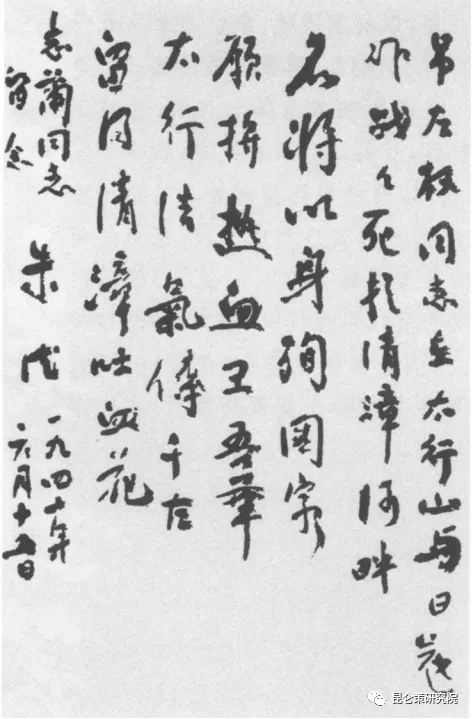 吊左权同志在太行山与日寇
作战々死於清漳河畔
名将以身殉國家
願拚熱血卫吾華
太行浩氣傳千古
留得清漳吐血花
志蘭同志
留念
朱德
一九四十年
六月十五日
昆仑策研究院